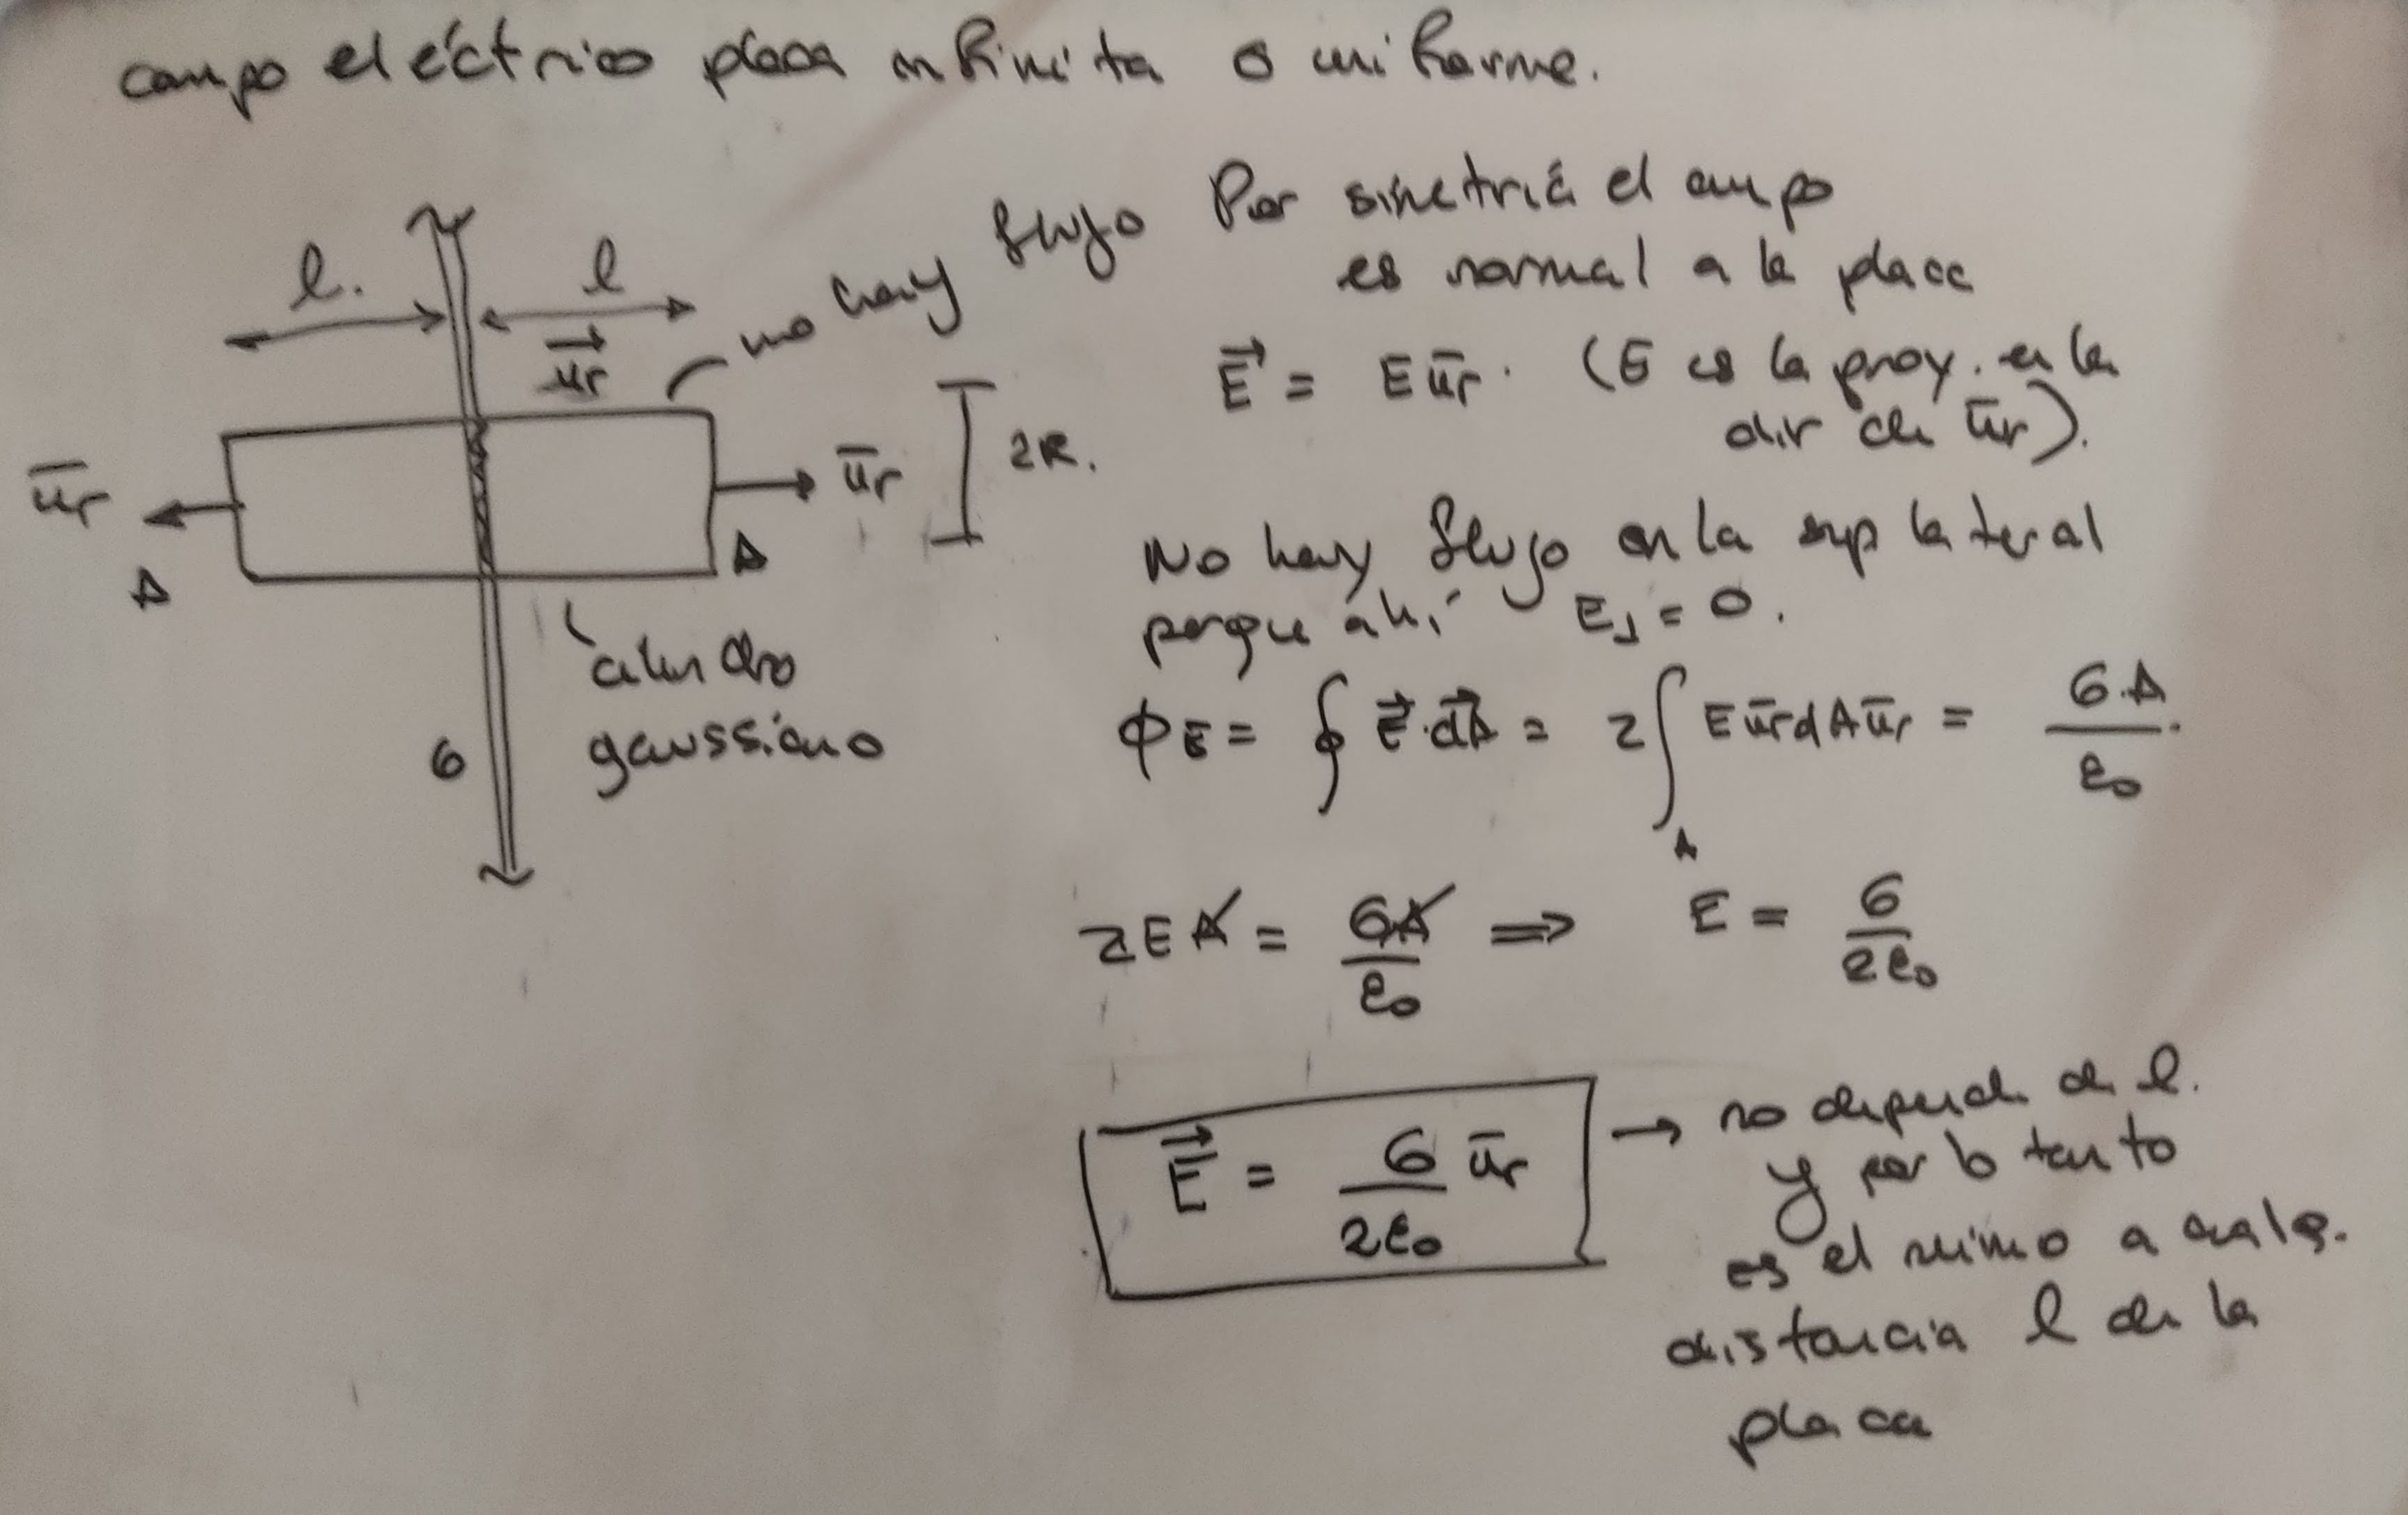 campo eléctrico placa infinita σ uniforme.
l.
l
u⃗r
no hay flujo
ūr
ūr
2R.
A
A
cilindro
gaussiano
σ
Por simetría el campo
es normal a la placa
E⃗ = E ūr. (E es la proy. en la
dir de ūr).
No hay flujo en la sup lateral
porque ahí E⊥ = 0.
ϕE = ∮ E⃗·dA⃗ = 2∫A E ūr dA ūr = σ·A/ε₀.
2EA = σA/ε₀ ⇒ E = σ/2ε₀
E⃗ = σ/2ε₀ ūr → no depende de l.
y por lo tanto
es el mimo a cualq.
distancia l de la
placa